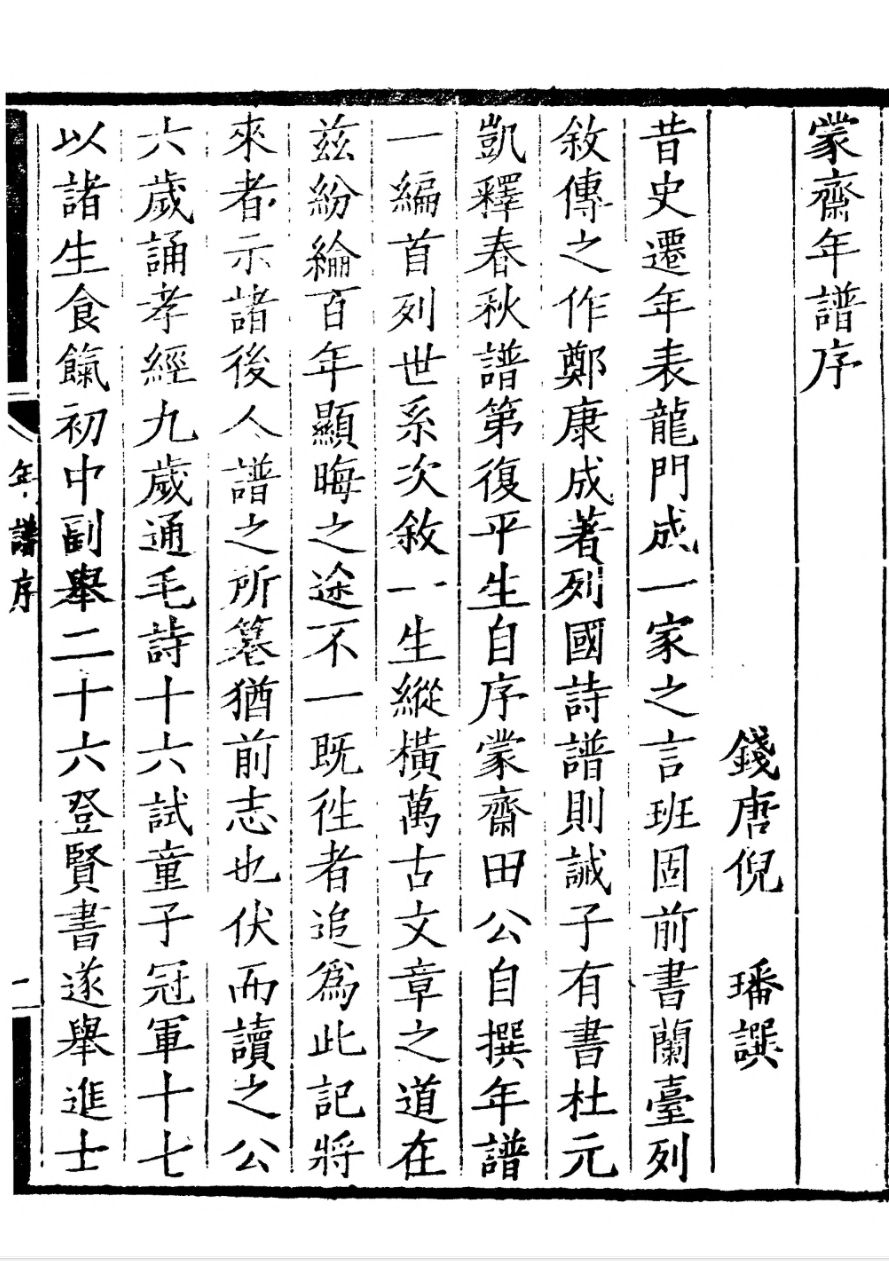 蒙齋年譜序
錢唐倪　璠譔
昔史遷年表龍門成一家之言班固前書蘭臺列
敘傳之作鄭康成著列國詩譜則誡子有書杜元
凱釋春秋譜第復平生自序蒙齋田公自撰年譜
一編首列世系次敘一生縱橫萬古文章之道在
茲紛綸百年顯晦之途不一既徃者追爲此記將
來者示諸後人譜之所篹猶前志也伏而讀之公
六歲誦孝經九歲通毛詩十六試童子冠軍十七
以諸生食餼初中副舉二十六登賢書遂舉進士
年譜序
二